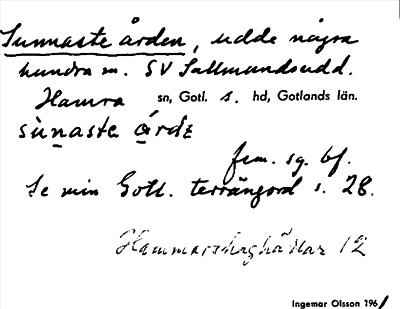 Sunnaste ården, udde några
hundra m. SV Sallmundsudd.
Hamra sn, Gotl. s. hd, Gotlands län.
sùnaste ǫ́rdɛ
fem. sg. bf.
Se min Gotl. terrängord s. 28.
Hammarshaghällar 12
Ingemar Olsson 1961